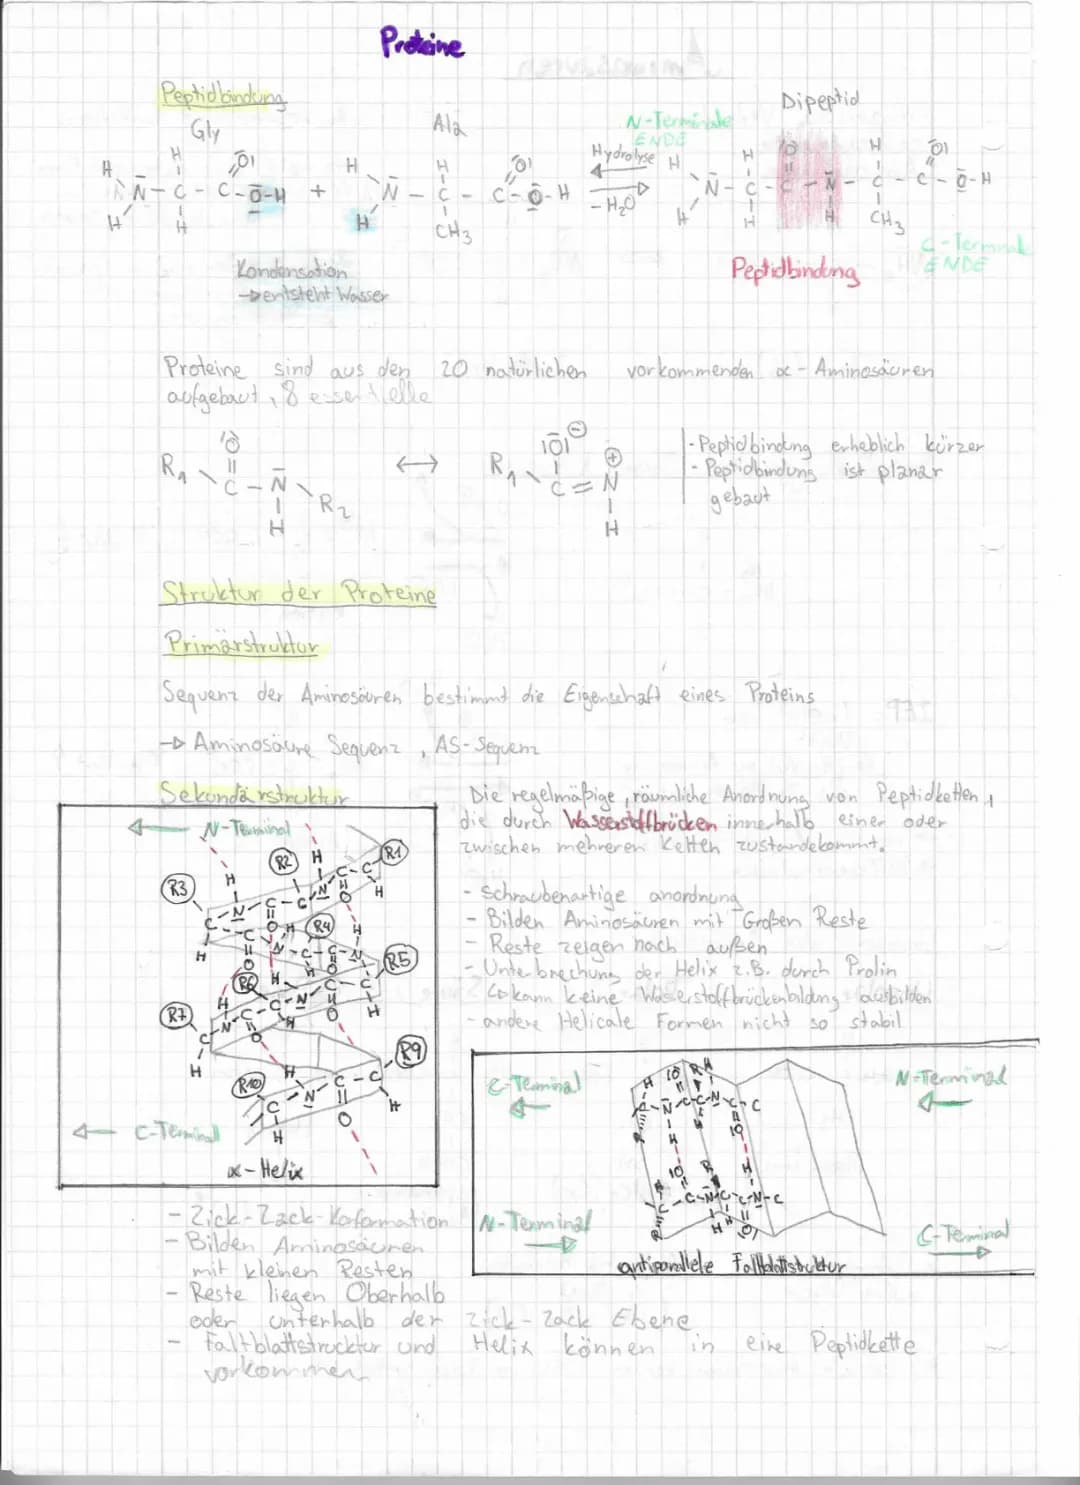 Proteine
Peptidbindung
Gly
Ala
Dipeptid
N-Terminale
ENDE
Hydrolyse
- H₂O
C-Terminale
ENDE
Peptidbindung
Kondensation
→ entsteht Wasser
Proteine sind aus den 20 natürlichen vorkommenden α-Aminosäuren
aufgebaut, 8 essentielle
- Peptidbindung erheblich kürzer
- Peptidbindung ist planar
gebaut
Struktur der Proteine
Primärstruktur
Sequenz der Aminosäuren bestimmt die Eigenschaft eines Proteins
→ Aminosäure Sequenz, AS-Sequenz
Sekundärstruktur
Die regelmäßige, räumliche Anordnung von Peptidketten,
die durch Wasserstoffbrücken innerhalb einer oder
zwischen mehreren Ketten zustandekommt.
- Schraubenartige anordnung
- Bilden Aminosäuren mit Großen Reste
- Reste zeigen nach außen
- Unterbrechung der Helix z.B. durch Prolin
↳ kann keine Wasserstoffbrückenbildung ausbilden
- andere Helicale Formen nicht so stabil
N-Terminal
R1
R2
R3
R4
R5
R6
R7
R9
R10
C-Terminal
α-Helix
C-Terminal
N-Terminal
N-Terminal
C-Terminal
antiparallele Faltblattstruktur
- Zick-Zack-Konformation
- Bilden Aminosäuren
mit kleinen Resten
- Reste liegen Oberhalb
oder unterhalb der Zick-Zack Ebene
- Faltblattstrucktur und Helix können in eine Peptidkette
vorkommen